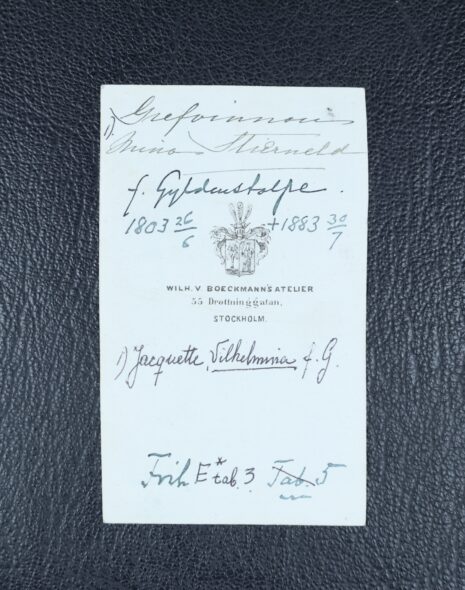 1) Grefvinnan
Mina Stierneld
f. Gyldenstolpe.
1803 26/6 +1883 30/7
WILH. V BOECKMANN'S ATELIER
55 Drottninggatan,
STOCKHOLM.
1) Jacquette, Vilhelmina f. G.
Frih E* tab. 3 Tab. 5